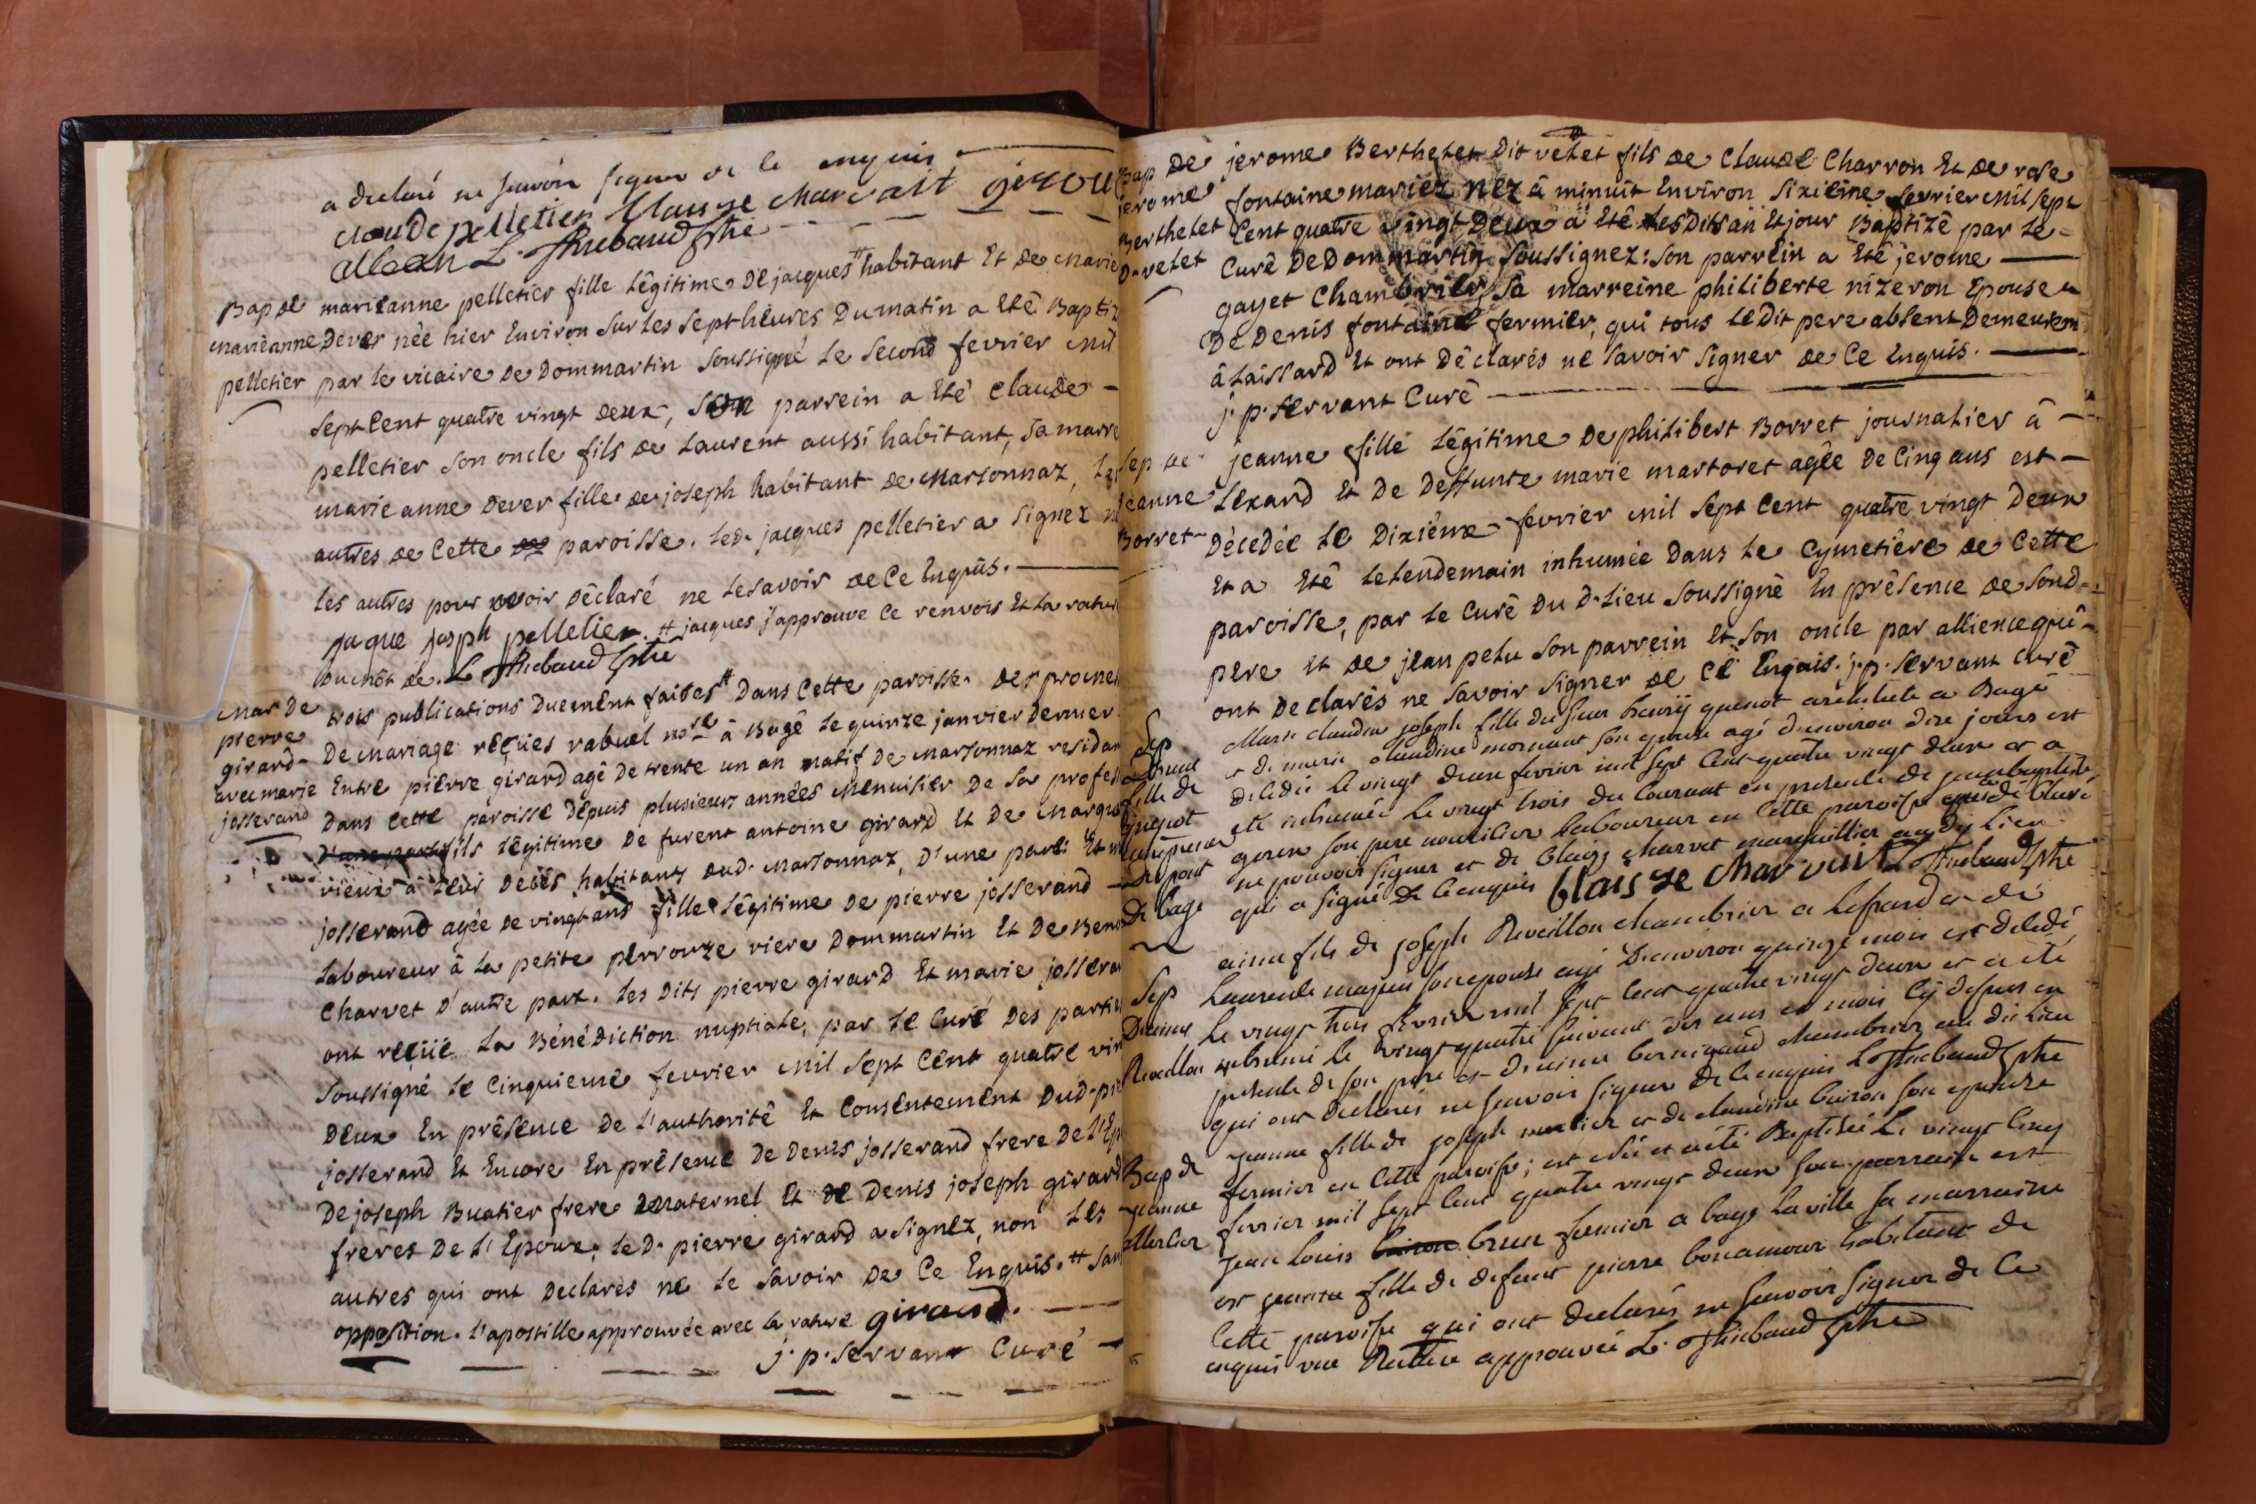 a declaré ne savoir signer de ce enquis
claude pelletier blaisse charvait
L. Thiebaud ptre
Bap de
marieanne
pelletier
marieanne pelletier fille légitime de jacques habitant Et de marie
Dever née hier Environ sur les sept heures Du matin a Eté Baptiz
par le vicaire de Dommartin soussigné le second fevrier mil
sept Cent quatre vingt deux, son parrein a Eté claude
pelletier son oncle fils de Laurent aussi habitant, sa marre
marie anne Dever fille de joseph habitant de Marsonnaz, les
autres de Cette paroisse. led. jacques pelletier a signez
les autres pour avoir Déclaré ne le savoir de Ce Enquis.
jaque joseph pelletier. # jacques j'approuve Ce renvois Et la rature
L. Thiebaud ptre
Mar De
pierre
girard
avec marie
josserand
trois publications Duement faites # Dans Cette paroisse. Des promes
De mariage reçües rabuel nore à Bagé le quinze janvier Dernier
Entre pierre girard agé De trente un an natif de marsonnaz residan
Dans Cette paroisse Depuis plusieurs années Menuisier De sa profes
D'une part fils légitime De furent antoine girard Et De Margue
vieux à leur Décès habitants aud. Marsonnaz, D'une part: Et
josserand agée De vingt ans fille légitime De pierre josserand
laboureur à la petite perrouze riere Dommartin Et De Beno
Charvet D'autre part. les Dits pierre girard Et marie jossera
ont reçüe La Bénédiction nuptiale, par le Curé Des parties
soussigné le Cinquieme fevrier mil sept Cent quatre vin
Deux En présence De l'authorité Et Consentement Dud. pie
josserand Et Encore En présence De Denis josserand frere De l'Ep
De joseph Buatier frere maternel Et de Denis joseph girard
freres De l'Epoux; le D. pierre girard a signez, non les
autres qui ont Declarés ne le savoir De Ce Enquis. # san
opposition. l'apostille approuvée avec la rature girard.
j. p. servant Curé
Bap De
jerome
Berthelet
D. velet
jerome Berthelet Dit velet fils de Claude Charron Et de rose
fontaine mariez nez à minuit Environ sixième fevrier mil sept
Cent quatre vingt Deux à Eté lesdits an Et jour Baptizé par le
Curé De Dommartin soussignez: son parrein a Eté jerome
gayet Chambrier, sa marreine philiberte nizeron Epouse
De Denis fontaine fermier, qui tous le Dit pere absent Demeurent
à Laissard Et ont Déclarés ne savoir signer de Ce Enquis.
j. p. servant Curé
Sep de
jeanne
Borret
jeanne fille légitime De philibert Borret journalier à
Lexard Et De Deffunte marie martoret agée De Cinq ans est
Décedée le Dixième fevrier mil sept Cent quatre vingt Deux
Et a Eté le lendemain inhumée Dans le Cymetière de Cette
paroisse, par le Curé Du D. Lieu soussigné En présence de son d.
pere Et de jean petu son parrein Et son oncle par allience qui
ont Declarés ne savoir signer de Ce Enquis. j. p. servant Curé
Sep
fille de
De bage
Marie claudine joseph fille du sieur quenot architecte a Bagé
et de marie claudine son epouse agé d'environ dix jours est
décédée le vingt deux fevrier mil sept Cent quatre vingt deux et a
eté inhumée le vingt trois du Courant en presence de jean baptiste
son pere nourricier laboureur en Cette paroisse qui a déclaré
ne pouvoir signer et de blaize charvet marguillier au dit lieu
qui a signé de ce enquis blaisse charvait L. Thiebaud ptre
Sep
Revellon
aimé fils de joseph Revillon chambrier a Lessard et de
Laurence son epouse agé D'environ quinze mois est decedé
le vingt trois fevrier mil sept Cent quatre vingt deux et a eté
inhumé le vingt quatre suivant des ans et mois cy dessus en
presence de son pere et chambrier au dit lieu
qui ont declarés ne savoir signer de ce enquis L. Thiebaud ptre
Bap de
jeanne
Merlier
jeanne fille de joseph merlier et de claudine buiron son epouse
fermier en Cette paroisse; est née et a eté Baptisée le vingt Cinq
fevrier mil sept Cent quatre vingt deux son parrain est
jean louis brun fermier a bage la ville sa marraine
est fille de defunt pierre bonamour habitant de
Cette paroisse qui ont declarés ne savoir signer de Ce
enquis une Rature approuvée L. Thiebaud ptre